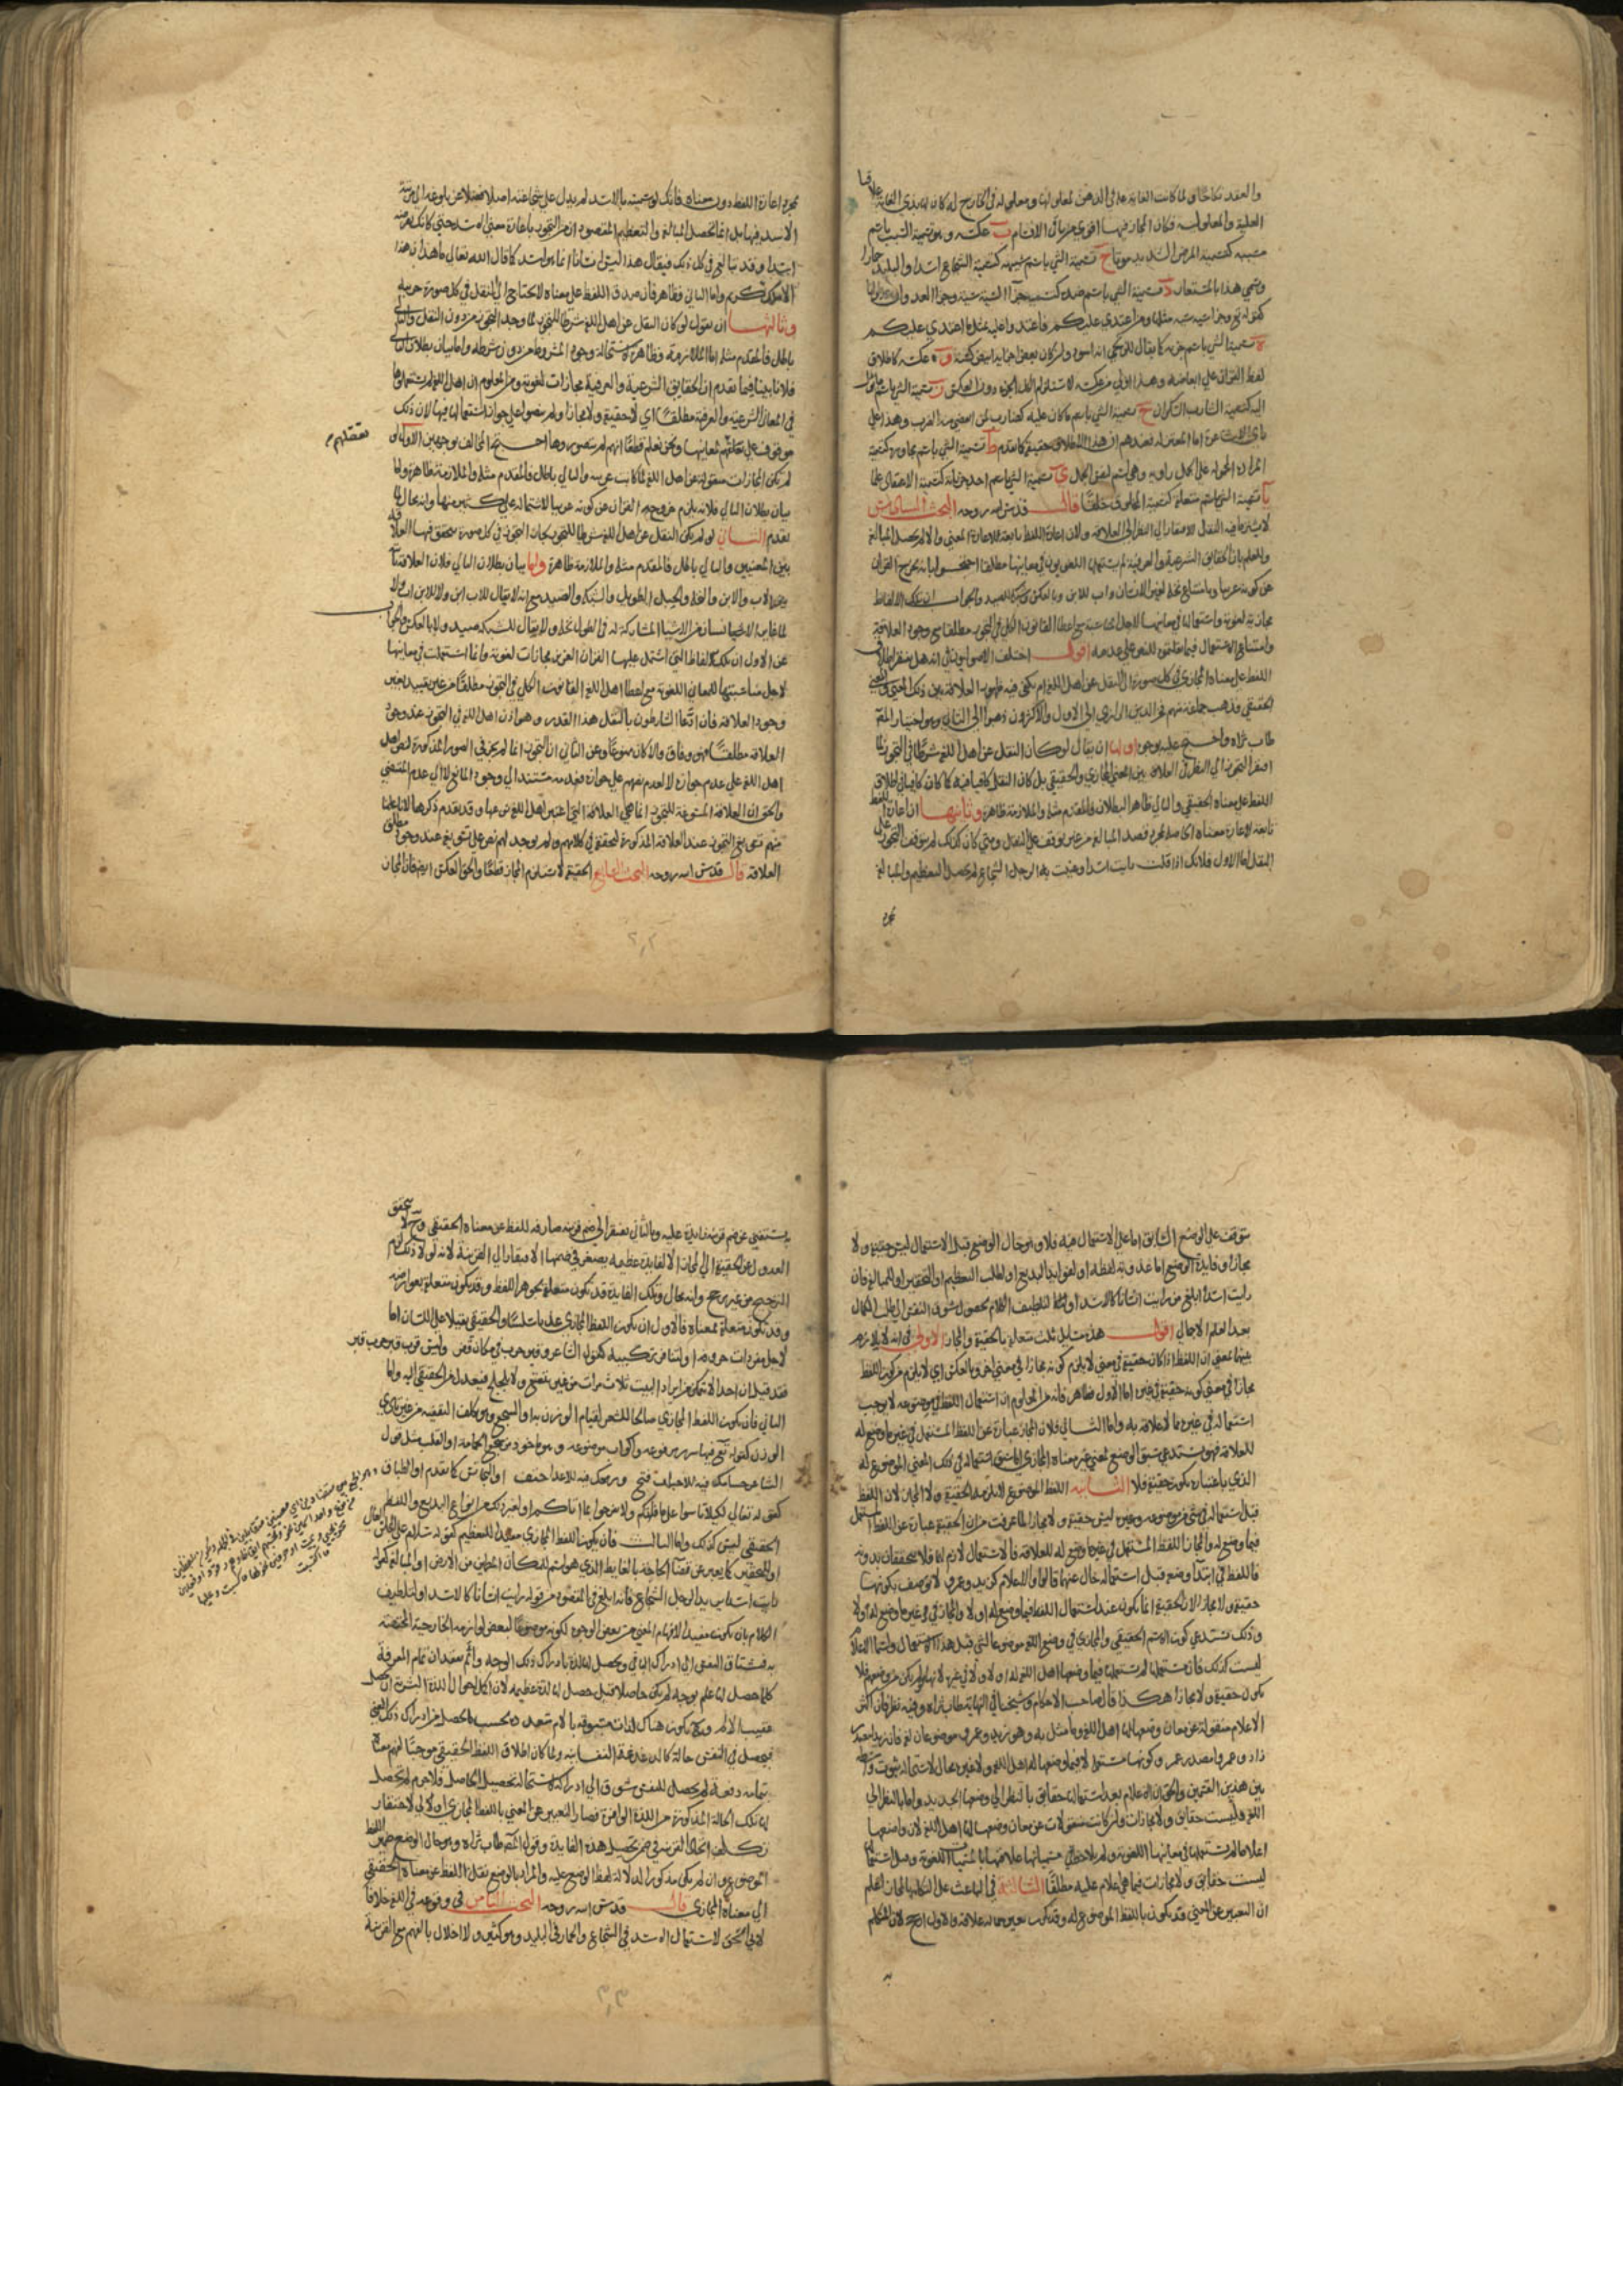 والعقد نكاحًا ولما كانت الغاية علة في الذهن معلولها ومعلوله في الخارج له كان لها مزية الغاية علاقتا
العلية والمعلولية فكان المجاز فيها اقوى من باقي الاقسام ب عكسه وهو تسمية السبب باسم
مسببه كتسمية المرض الشديد موتا ج تسمية الشي باسم شبيهه كتسمية الشجاع اسدا والبليد حمارا
وسمي هذا بالمستعار د تسمية الشي باسم ضده كتسمية جزاء السيئة سيئة وجزاء العدوان عدوانا
كقوله تع وجزاء سيئة سيئة مثلها ومن اعتدى عليكم فاعتدوا عليه بمثل ما اعتدى عليكم
ه تسمية الشي باسم جزئه كما يقال للزنجي انه اسود وان كان بعض اجزايه ابيض كسنه و عكسه كاطلاق
لفظ القران على ابعاضه وهذا اولى من عكسه لاستلزام الكل الجزء دون العكس ز تسمية الشي باسم ما يؤل
اليه كتسمية الشارب السكران ح تسمية الشي باسم ما كان عليه كضارب لمن انقضى منه الضرب وهذا على
راي الاشاعرة اما المعتزلة فعندهم ان هذا الاطلاق حقيقة كما تقدم ط تسمية الشي باسم مجاوره كتسمية
المزادة المحمولة على الجمل راوية وهي اسم لنفس الجمل ي
يا تسمية الشي باسم متعلقه كتسمية المخلوق خلقا قال قدس الله روحه البحث السادس
لا يشترط فيه النقل لافتقاره الى النظر الى العلاقة ولان اعارة اللفظ تابعة لاعارة المعنى والا لم يحصل المبالغة
وللعلم بان الحقايق الشرعية والعرفية لم يستعملها اللغويون في معانيها مطلقا احتجوا بانه يخرج القران
عن كونه عربيا وبامتناع نخلة لغير الانسان واب للابن وبالعكس وشبكة للصيد والجواب ان تلك الالفاظ
مجازية لغوية واستعمالها في معانيها لاجل المناسبة مع اعطا القانون الكلي في التجوز مطلقا مع وجود العلاقة
وامتناع الاستعمال فيما نقلتم للنص على عدمه اقول اختلف الاصوليون في انه هل يفتقر اطلاق
اللفظ على معناه المجازي في كل صورة الى النقل عن اهل اللغة ام يكفي فيه ظهور العلاقة بين ذلك المعنى والمعنى
الحقيقي فذهب جماعة منهم فخر الدين الرازي الى الاول والاكثرون ذهبوا الى الثاني وهو اختيار المصنف
طاب ثراه واحتج عليه بوجوه اولها ان يقال لو كان النقل عن اهل اللغة شرطا في التجوز لما
افتقر التجوز الى النظر في العلاقة بين المعنى المجازي والحقيقي بل كان النقل كافيا فيه كما كان كافيا في اطلاق
اللفظ على معناه الحقيقي والتالي ظاهر البطلان فالمقدم مثله والملازمة ظاهرة وثانيها ان اعارة اللفظ
تابعة لاعارة معناه الحاصلة لمجرد قصد المبالغة من غير توقف على النقل ومتى كان كذلك لم يتوقف التجوز على
النقل اما الاول فلانك اذا قلت رايت اسدا وعنيت به الرجل الشجاع لم يحصل التعظيم والمبالغة
بمجرد
بمجرد اعارة اللفظ دون معناه فانك لو سميته بالاسد لم يدل على شجاعته اصلا فضلا عن بلوغه الى مرتبة
الاسد فيها بل انما تحصل المبالغة والتعظيم المقصود ان من التجوز باعارة معنى الاسد حتى كانك
ابتداء وقد يبالغ في كل ذلك فيقال هذا ليس انسانا انما هو اسد كما قال الله تعالى ما هذا ان هذا
الا ملك كريم واما الثاني فظاهر فان صدق اللفظ على معناه لا يحتاج الى النقل في كل صورة جزيية
وثالثها ان نقول لو كان النقل عن اهل اللغة شرطا للتجوز لما وجد التجوز من دون النقل والتالي
باطل فالمقدم مثله اما الملازمة فظاهرة لاستحالة وجود المشروط من دون شرطه واما بيان بطلان التالي
فلانا بينا فيما تقدم ان الحقايق الشرعية والعرفية مجازات لغوية ومن المعلوم ان اهل اللغة لم يستعملوها
في المعاني الشرعية والعرفية مطلقا اي لا حقيقة ولا مجازا ولم ينصوا على جواز استعمالها فيها لان ذلك
موقوف على تعقلهم لمعانيها ونحن نعلم قطعا انهم لم يتصوروها احتج المخالف بوجهين الاول لو
تعقلهم
لم تكن المجازات منقولة عن اهل اللغة لما كانت عربية والتالي باطل فالمقدم مثله والملازمة ظاهرة واما
بيان بطلان التالي فلانه يلزم خروج القران عن كونه عربيا لاشتماله على كثير منها وانه محال لما
تقدم الثاني لو لم يكن النقل عن اهل اللغة شرطا للتجوز لجاز التجوز في كل صورة يتحقق فيها العلاقة
بين المعنيين والتالي باطل فالمقدم مثله والملازمة ظاهرة واما بيان بطلان التالي فلان العلاقة ثابتة
بين الاب والابن والنخلة والحبل الطويل والشبكة والصيد مع انه لا يقال للاب ابن ولا للابن اب ولا
لما غاير الانسان من الاشياء المشاركة له في الطول نخلة ولا يقال للشبكة صيد ولا بالعكس والجواب
عن الاول ان تلك الالفاظ التي اشتمل عليها القران العزيز مجازات لغوية وانما استعملت في معانيها
لاجل مناسبتها للمعاني اللغوية مع اعطا اهل اللغة القانون الكلي في التجوز مطلقا من غير تقييد بغير
وجود العلاقة فان ادعا الشارطون بالنقل هذا القدر وهو اذن اهل اللغة في التجوز عند وجود
العلاقة مطلقا فهو وفاق والا كان ممنوعا وعن الثاني ان التجوز انما لم يجز في الصور المذكورة لنص اهل
اهل اللغة على عدم جوازه لا لعدم نصهم على جوازه فعدمه مستند الى وجود المانع لا الى عدم المقتضي
والحق ان العلاقة المسوغة للتجوز انما هي العلاقة التي اعتبرها اهل اللغة نوعها وقد تقدم ذكرها لانا علمنا
منهم تسويغ التجوز عند العلاقة المذكورة لتحققه في كلامهم ولم يوجد لهم نص على تسويغه عند وجود مطلق
العلاقة قال قدس الله روحه البحث السابع الحقيقة لا تستلزم المجاز قطعا والحق العكس ايضا فان المجاز
يتوقف على الوضع السابق اما على الاستعمال فيه فلا وهو حال الوضع قبل الاستعمال ليس حقيقة ولا
مجازا وفايدة الوضع اما عذوبة لفظه او لفوايد البديع او لطلب التعظيم او التحقير او المبالغة فان
رايت اسدا ابلغ من رايت انسانا كالاسد او لتلطيف الكلام بحصول شوق النفس الى طلب الكمال
بعد العلم الاجمالي اقول هذه مسايل ثلث متعلقة بالحقيقة والمجاز الاولى في انه لا تلازم
بينهما بمعنى ان اللفظ اذا كان حقيقة في معنى لا يلزم كونه مجازا في معنى اخر وبالعكس اي لا يلزم من كون اللفظ
مجازا في معنى كونه حقيقة في غيره اما الاول فظاهر فانه من المعلوم ان استعمال اللفظ في موضوعه لا يوجب
استعماله في غيره مما لا علاقة به واما الثاني فلان المجاز عبارة عن اللفظ المستعمل في غير ما وضع له
للعلاقة فهو يستدعي سبق الوضع لمعنى غير معناه المجازي اما سبق استعماله في ذلك المعنى الموضوع له
الذي باعتباره يكون حقيقة فلا الثانية اللفظ الموضوع لا تلزمه الحقيقة ولا المجاز لان اللفظ
قبل استعماله في شي من موضوعه وغيره ليس حقيقة ولا مجازا لما عرفت من ان الحقيقة عبارة عن اللفظ المستعمل
فيما وضع له والمجاز اللفظ المستعمل في غير ما وضع له للعلاقة فالاستعمال لازم لهما فلا يتحققان بدونه
فاللفظ في ابتداء وضعه قبل استعماله خال عنهما قالوا والاعلام كزيد وعمرو لا توصف بكونها
حقيقة ولا مجازا لان الحقيقة انما تكون عند استعمال اللفظ فيما وضع له اولا والمجاز في غير ما وضع له اولا
وذلك يستدعي كون الاسم الحقيقي والمجازي في وضع اللغة موضوعا لشي قبل هذا الاستعمال واسماء الاعلام
ليست كذلك فان مستعملها لم يستعملها فيما وضعها اهل اللغة له اولا ولا في غيره لانها لم تكن من وضعهم فلا
تكون حقيقة ولا مجازا هكذا قال صاحب الاحكام وشيخنا في النهاية طاب ثراه وفيه نظر فان اكثر
الاعلام منقولة عن معان وضعها لها اهل اللغة وما مثل به وهو زيد وعمرو موضوعان لغة فان زيدا مصدر
زاد وعمرو مصدر عمر وكونها مستعملة لا فيما وضعها له اهل اللغة ولا غيره محال لاستحالة ثبوت واسطة
بين هذين القسمين والحق ان الاعلام بعد استعمالها حقايق بالنظر الى وضعها الجديد واما بالنظر الى
اللغة فليست حقايق ولا مجازات وان كانت منقولات عن معان وضعها لها اهل اللغة لان واضعها
اعلاما لم يستعملها في معانيها اللغوية ولم يلاحظ في مسمياتها علاقة لها بالمسميات اللغوية وقبل استعمالها
ليست حقايق ولا مجازات فيما هي اعلام عليه مطلقا الثالثة في الباعث على التكلم بالمجاز اعلم
ان التعبير عن المعنى قد يكون باللفظ الموضوع له وقد يكون بغيره مما له علاقة والاول ارجح لان المتكلم
به
يستغني عن ضم قرينة زايدة عليه وبالثاني يفتقر الى ضم قرينة صارفة للفظ عن معناه الحقيقي وح لا يتحقق
العدول عن الحقيقة الى المجاز الا لفايدة عظيمة يصغر في ضمنها الافتقار الى القرينة لانه لولا ذلك لزم
الترجيح من غير مرجح وانه محال وتلك الفايدة قد تكون متعلقة بجوهر اللفظ وقد تكون متعلقة بعوارضه
وقد تكون متعلقة بمعناه فالاول ان يكون اللفظ المجازي عذبا سلسا والحقيقي ثقيلا على اللسان اما
لاجل مفردات حروفه او لتنافر تركيبه كقول الشاعر وقبر حرب في مكان قفر وليس قرب قبر حرب قبر
فقد قيل ان احدا لا يتمكن من ايراد البيت ثلاث مرات من غير تتعتع ولا تلجلج فيعدل من الحقيقي اليه واما
الثاني فان يكون اللفظ المجازي صالحا للشعر لقيام الوزن به او السجع وهو تكلف التقفية من غير تادي
الوزن كقوله تع فيها سرر مرفوعة واكواب موضوعة وهو ماخوذ من سجع الحمامة او القلب مثل قول
الشاعر حسامك فيه للاحباب فتح ورمحك فيه للاعداء حتف او التجانس كما تقدم او الطباق
كقوله تعالى لكيلا تاسوا على ما فاتكم ولا تفرحوا بما اتاكم او غير ذلك من انواع البديع واللفظ
الحقيقي ليس كذلك واما الثالث فان يكون اللفظ المجازي مفيدا للتعظيم كقوله سلام على المجلس العالي
او للتحقير كما يعبر عن قضاء الحاجة بالغايط الذي هو اسم للمكان المطمئن من الارض او المبالغة كقوله
رايت اسدا يريد الرجل الشجاع فانه ابلغ في المقصود من قوله رايت انسانا كالاسد او لتلطيف
الكلام بان يكون مفيدا لافهام المعنى من بعض الوجوه لكونه موضوعا لبعض لوازمه الخارجية المختصة
به فتشتاق النفس الى ادراك الباقي ويحصل لها لذة بادراك ذلك الوجه والم بفقدان تمام المعرفة
كلما حصل لها علم بوجه لم يكن حاصلا قبل حصل لها لذة عظيمة لان اكمل احوال اللذة البشرية ان تحصل
عقيب الالم وح يكون هناك لذات مسبوقة بالام متعددة بحسب ما يحصل من ادراك ذلك المعنى
فيحصل في النفس حالة كالدغدغة النفسانية ولما كان اطلاق اللفظ الحقيقي موجبا لفهم معناه
بتمامه دفعة لم يحصل للنفس شوق الى ادراكه لاستحالة تحصيل الحاصل فلا جرم لم تحصل
لها تلك الحالة المذكورة من اللذة الوافرة فصار التعبير عن المعنى باللفظ المجازي اولى لاحتقار
تكلف اتخاذ القرينة في ضمن تحصيل هذه الفايدة وقول المصنف طاب ثراه وهو حال الوضع
الموضوع وان لم يكن مذكورا لدلالة لفظ الوضع عليه والمراد بالوضع نقل اللفظ عن معناه الحقيقي
الى معناه المجازي قال قدس الله روحه البحث الثامن في وقوعه في اللغة خلافا
لابي اسحق لاستعمال الاسد في الشجاع والحمار في البليد وهو كثير ولا اخلال بالفهم مع القرينة